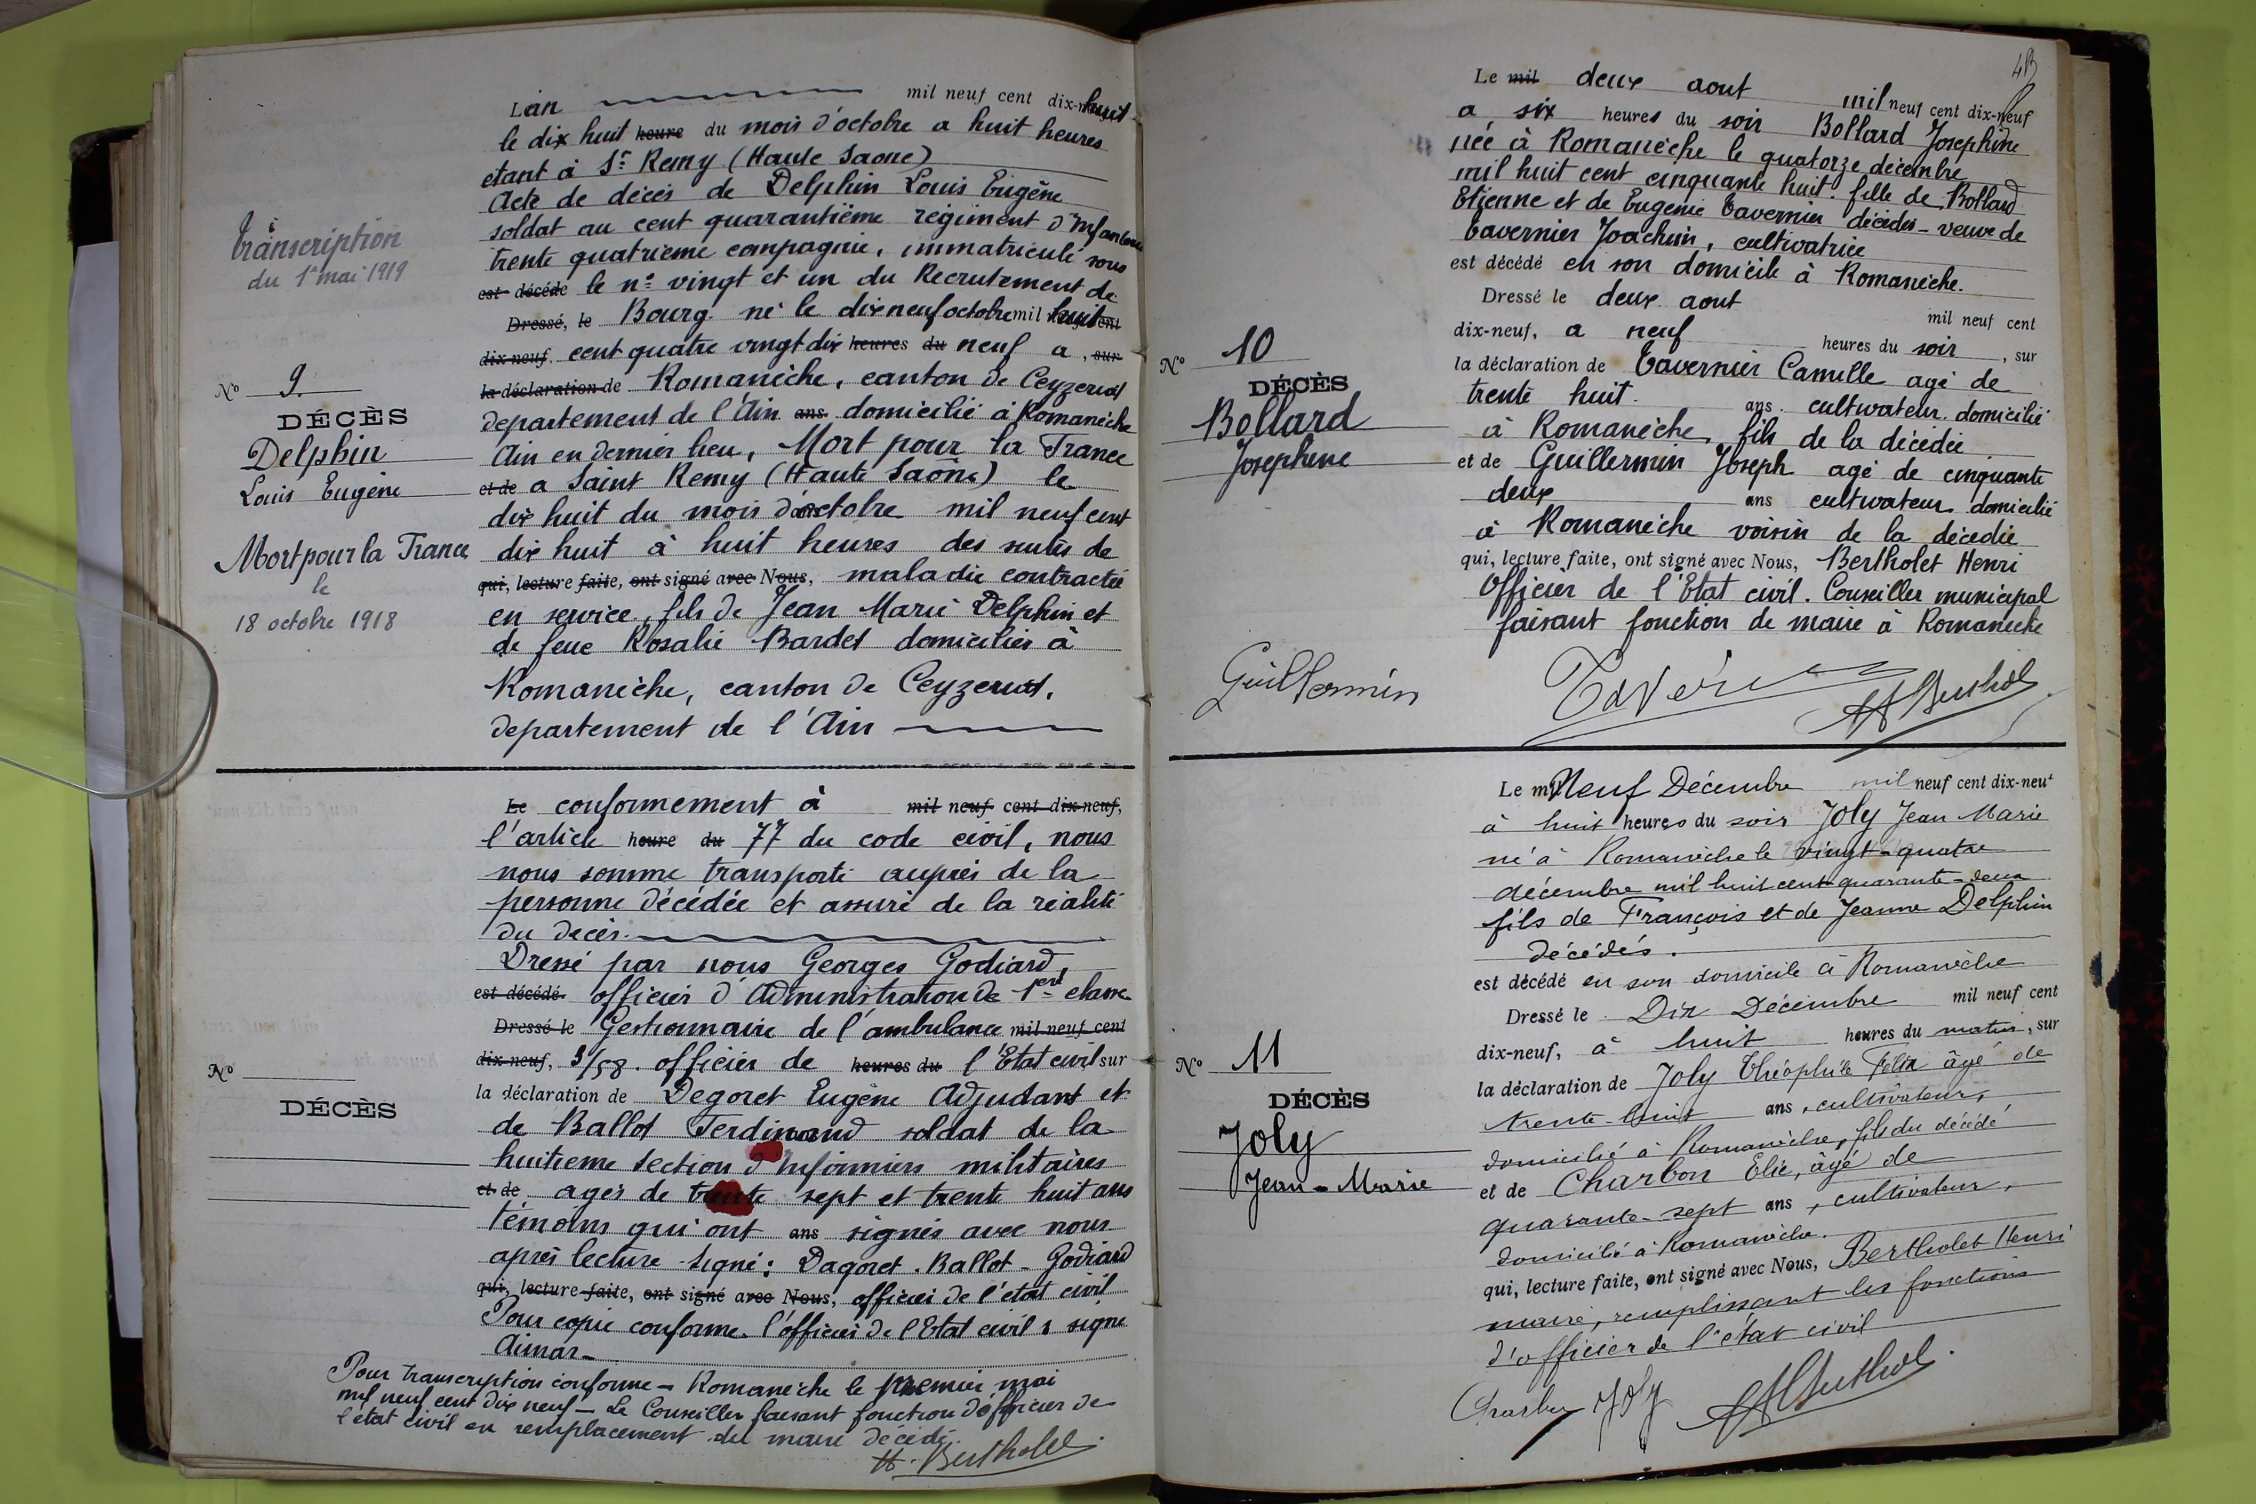 Transcription
du 1er mai 1919
No 9.
DÉCÈS
Delphin
Louis Eugène
Mort pour la France
le
18 octobre 1918
L'an mil neuf cent dix-huit
le dix huit heure du mois d'octobre a huit heures
etant à St Remy (Haute Saone)
Acte de décès de Delphin Louis Eugène
soldat au cent quarantième régiment d'Infanterie
trente quatrieme compagnie, immatriculé sous
est décédé le no vingt et un du Recrutement de
Dressé, le Bourg né le dix neuf octobre mil huit cent
dix-neuf, cent quatre vingt dix heures du neuf a, sur
la déclaration de Romanèche, canton de Ceyzeriat
département de l'Ain ans domicilié à Romanèche
Ain en dernier lieu, Mort pour la France
et de a Saint Remy (Haute Saone) le
dix huit du mois d'octobre mil neuf cent
dix huit à huit heures des suites de
qui, lecture faite, ont signé avec Nous, maladie contractée
en service, fils de Jean Marie Delphin et
de feue Rosalie Bardet domiciliés à
Romanèche, canton de Ceyzeriat,
département de l'Ain
No
DÉCÈS
Le conformement à mil neuf cent dix-neuf,
l'article heure du 77 du code civil, nous
nous somme transporté auprès de la
personne décédée et assuré de la réalité
du décès.
Dressé par nous Georges Godiard,
est décédé officier d'Administration de 1ère classe
Dressé le Gestionnaire de l'ambulance mil neuf cent
dix-neuf, 3/58. officier de heures du l'Etat civil sur
la déclaration de Degoret Eugène Adjudant et
de Ballot Ferdinand soldat de la
huitieme section d'Infirmiers militaires
et de agés de trente sept et trente huit ans
témoins qui ont ans signés avec nous
après lecture signé: Dagoret. Ballot - Godiard
qui, lecture faite, ont signé avec Nous, officier de l'état civil
Pour copie conforme. l'officier de l'Etat civil : signé
Aimar
Pour transcription conforme - Romanèche le premier mai
mil neuf cent dix neuf - Le Conseiller faisant fonction d'officier de
l'état civil en remplacement du maire décédé.
H. Bertholet
Le mil deux aout mil neuf cent dix-neuf
a six heures du soir Bollard Josephine
née à Romanèche le quatorze décembre
mil huit cent cinquante huit. fille de Bollard
Etienne et de Eugenie Tavernier décédés - veuve de
Tavernier Joachim, cultivatrice
est décédé en son domicile à Romanèche.
Dressé le deux aout mil neuf cent
dix-neuf, a neuf heures du soir, sur
la déclaration de Tavernier Camille agé de
trente huit ans. cultivateur domicilié
à Romanèche, fils de la décédée
et de Guillermin Joseph agé de cinquante
deux ans cultivateur domicilié
à Romanèche voisin de la décédée
qui, lecture faite, ont signé avec Nous, Bertholet Henri
Officier de l'Etat civil. Conseiller municipal
faisant fonction de maire à Romanèche
No 10
DÉCÈS
Bollard
Josephine
Guillermin
Tavernier
H Berthol
Le mil Neuf Décembre mil neuf cent dix-neuf
à huit heures du soir Joly Jean Marie
né à Romanèche le vingt-quatre
décembre mil huit cent quarante-deux
fils de François et de Jeanne Delphin
décédés.
est décédé en son domicile à Romanèche
Dressé le Dix Décembre mil neuf cent
dix-neuf, à huit heures du matin, sur
la déclaration de Joly Théophile Félix âgé de
trente-huit ans, cultivateur,
domicilié à Romanèche, fils du décédé
et de Charbon Elie, âgé de
quarante-sept ans, cultivateur,
domicilié à Romanèche.
qui, lecture faite, ont signé avec Nous, Bertholet Henri
maire, remplissant les fonctions
d'officier de l'état civil
No 11
DÉCÈS
Joly
Jean-Marie
Charbon Joly H Berthol